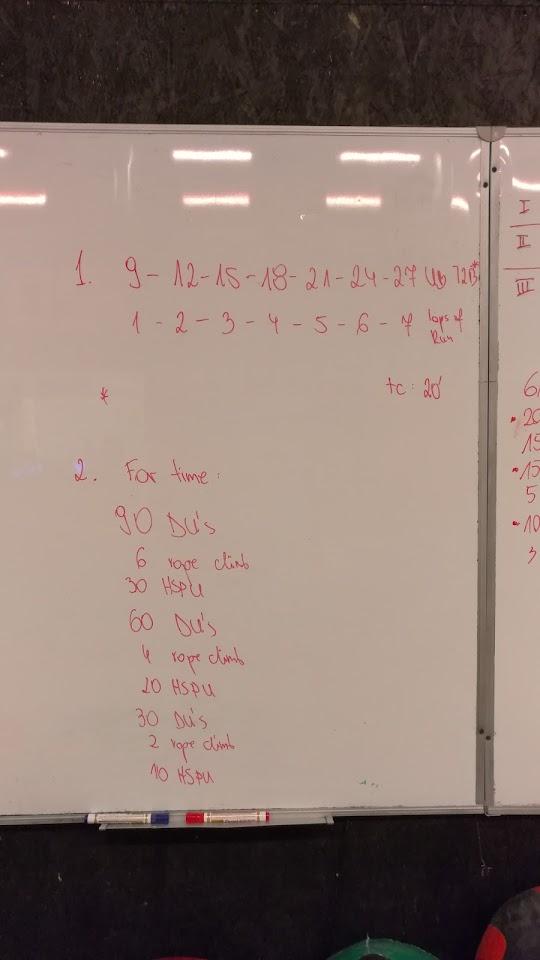 1. 9 - 12 - 15 - 18 - 21 - 24 - 27 UB T2B*
1 - 2 - 3 - 4 - 5 - 6 - 7 laps of Run
* tc: 20'
2. For time:
90 DU's
6 rope climb
30 HSPU
60 DU's
4 rope climb
20 HSPU
30 DU's
2 rope climb
10 HSPU
I
II
III
6
• 20
15
• 15
5
• 10
3